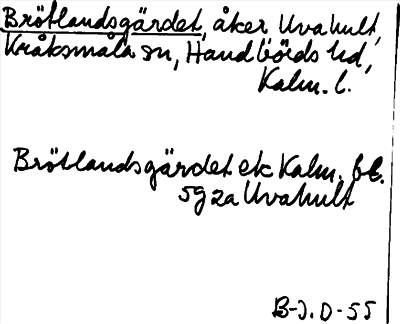 Brötlandsgärdet, åker Uvahult,
Kråksmåla sn, Handbörds hd,
Kalm. l.
Brötlandsgärdet ek Kalm. bl.
5g 2a Uvahult
B-J. D-55